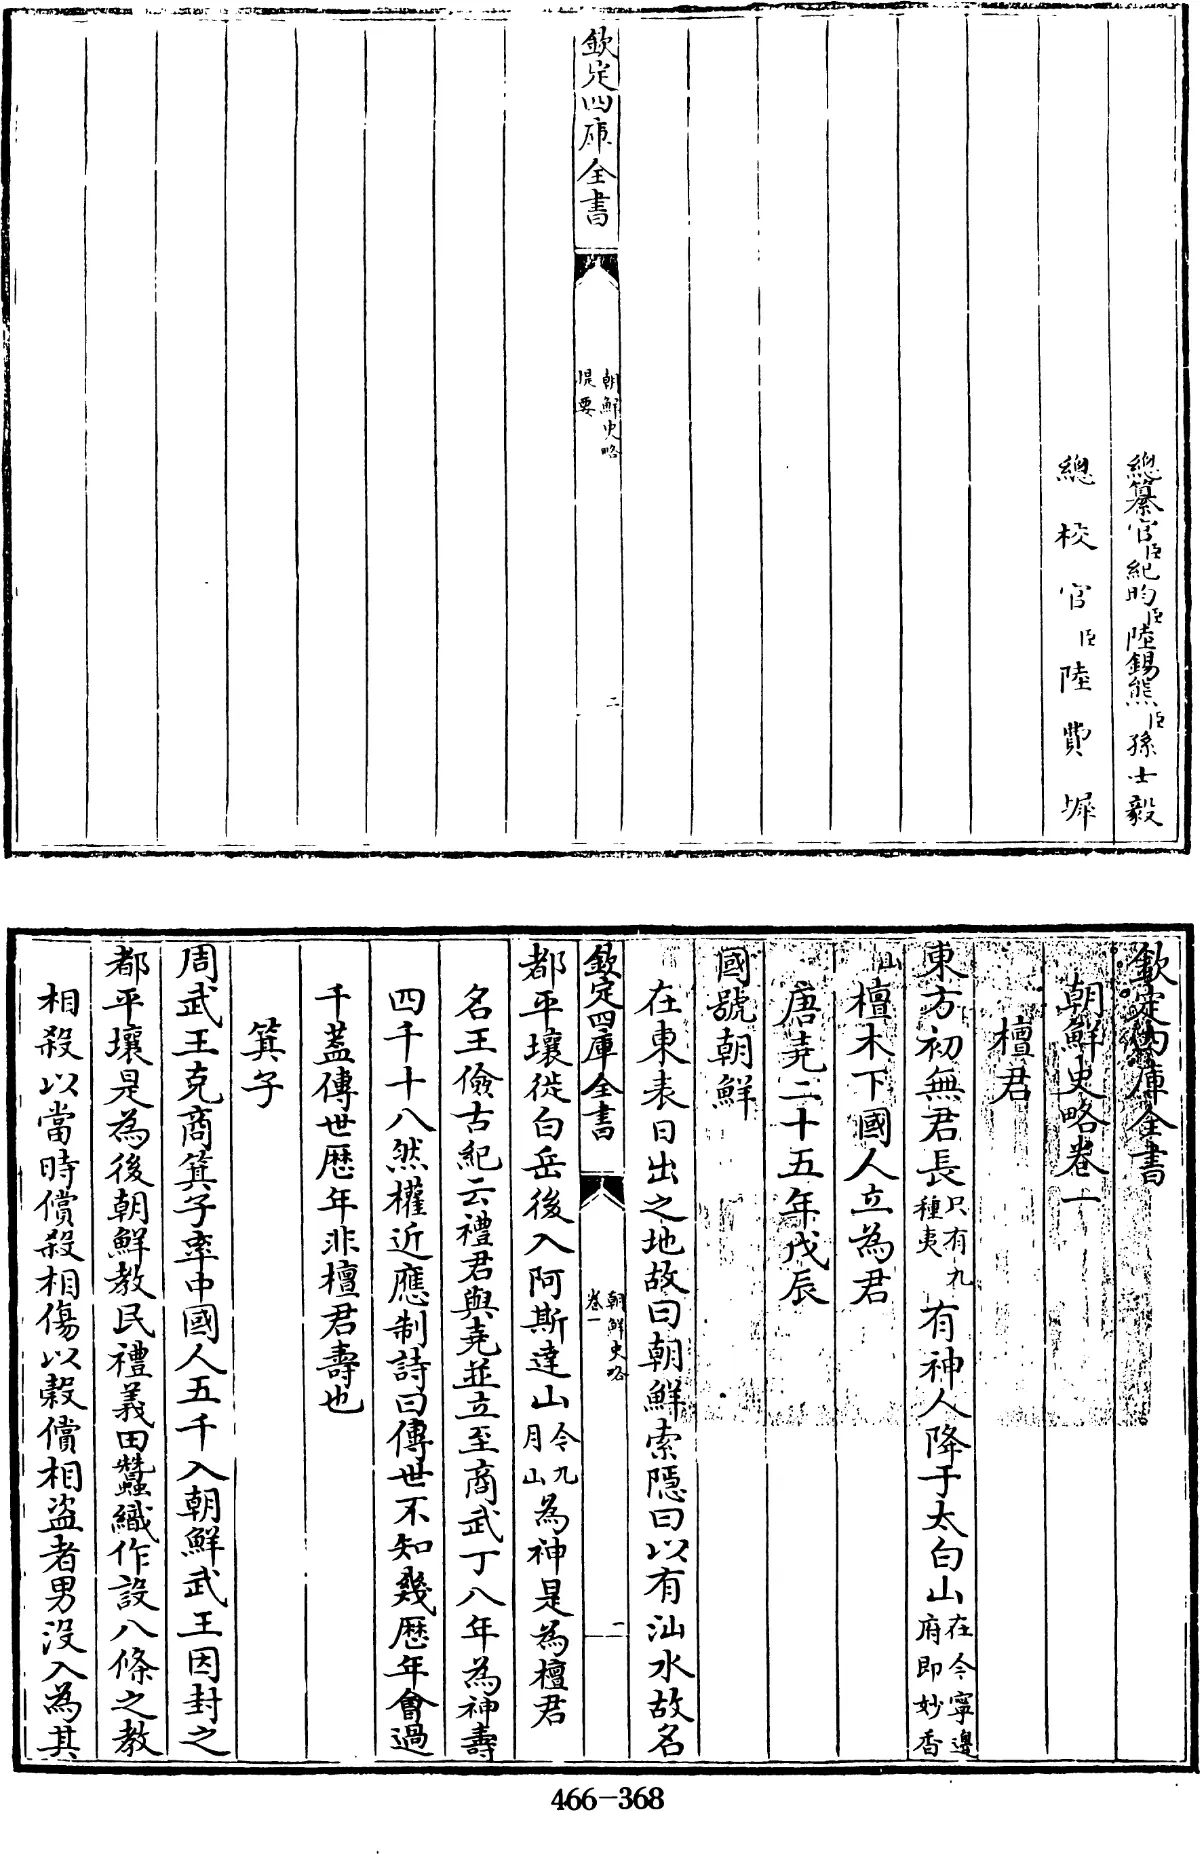 總纂官臣紀昀臣陸錫熊臣孫士毅
總校官臣陸費墀
欽定四庫全書
朝鮮史略
提要
二
欽定四庫全書
朝鮮史略卷一
檀君
東方初無君長只有九種夷有神人降于太白山在今寧邊府即妙香
山檀木下國人立為君
唐堯二十五年戊辰
國號朝鮮
在東表日出之地故曰朝鮮索隱曰以有汕水故名
欽定四庫全書
朝鮮史略
卷一
一
都平壤徙白岳後入阿斯達山今九月山為神是為檀君
名王儉古紀云禮君與堯並立至商武丁八年為神壽
四千十八然權近應制詩曰傳世不知幾歷年曾過
千葢傳世歷年非檀君壽也
箕子
周武王克商箕子率中國人五千入朝鮮武王因封之
都平壤是為後朝鮮教民禮義田蠶織作設八條之教
相殺以當時償殺相傷以穀償相盗者男沒入為其
466-368